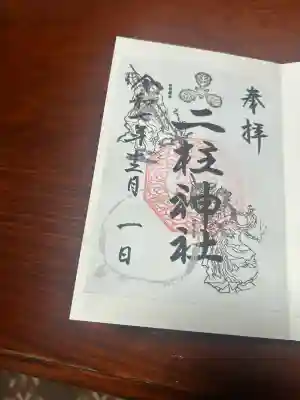 奉拝
二柱神社
令和七年十二月一日